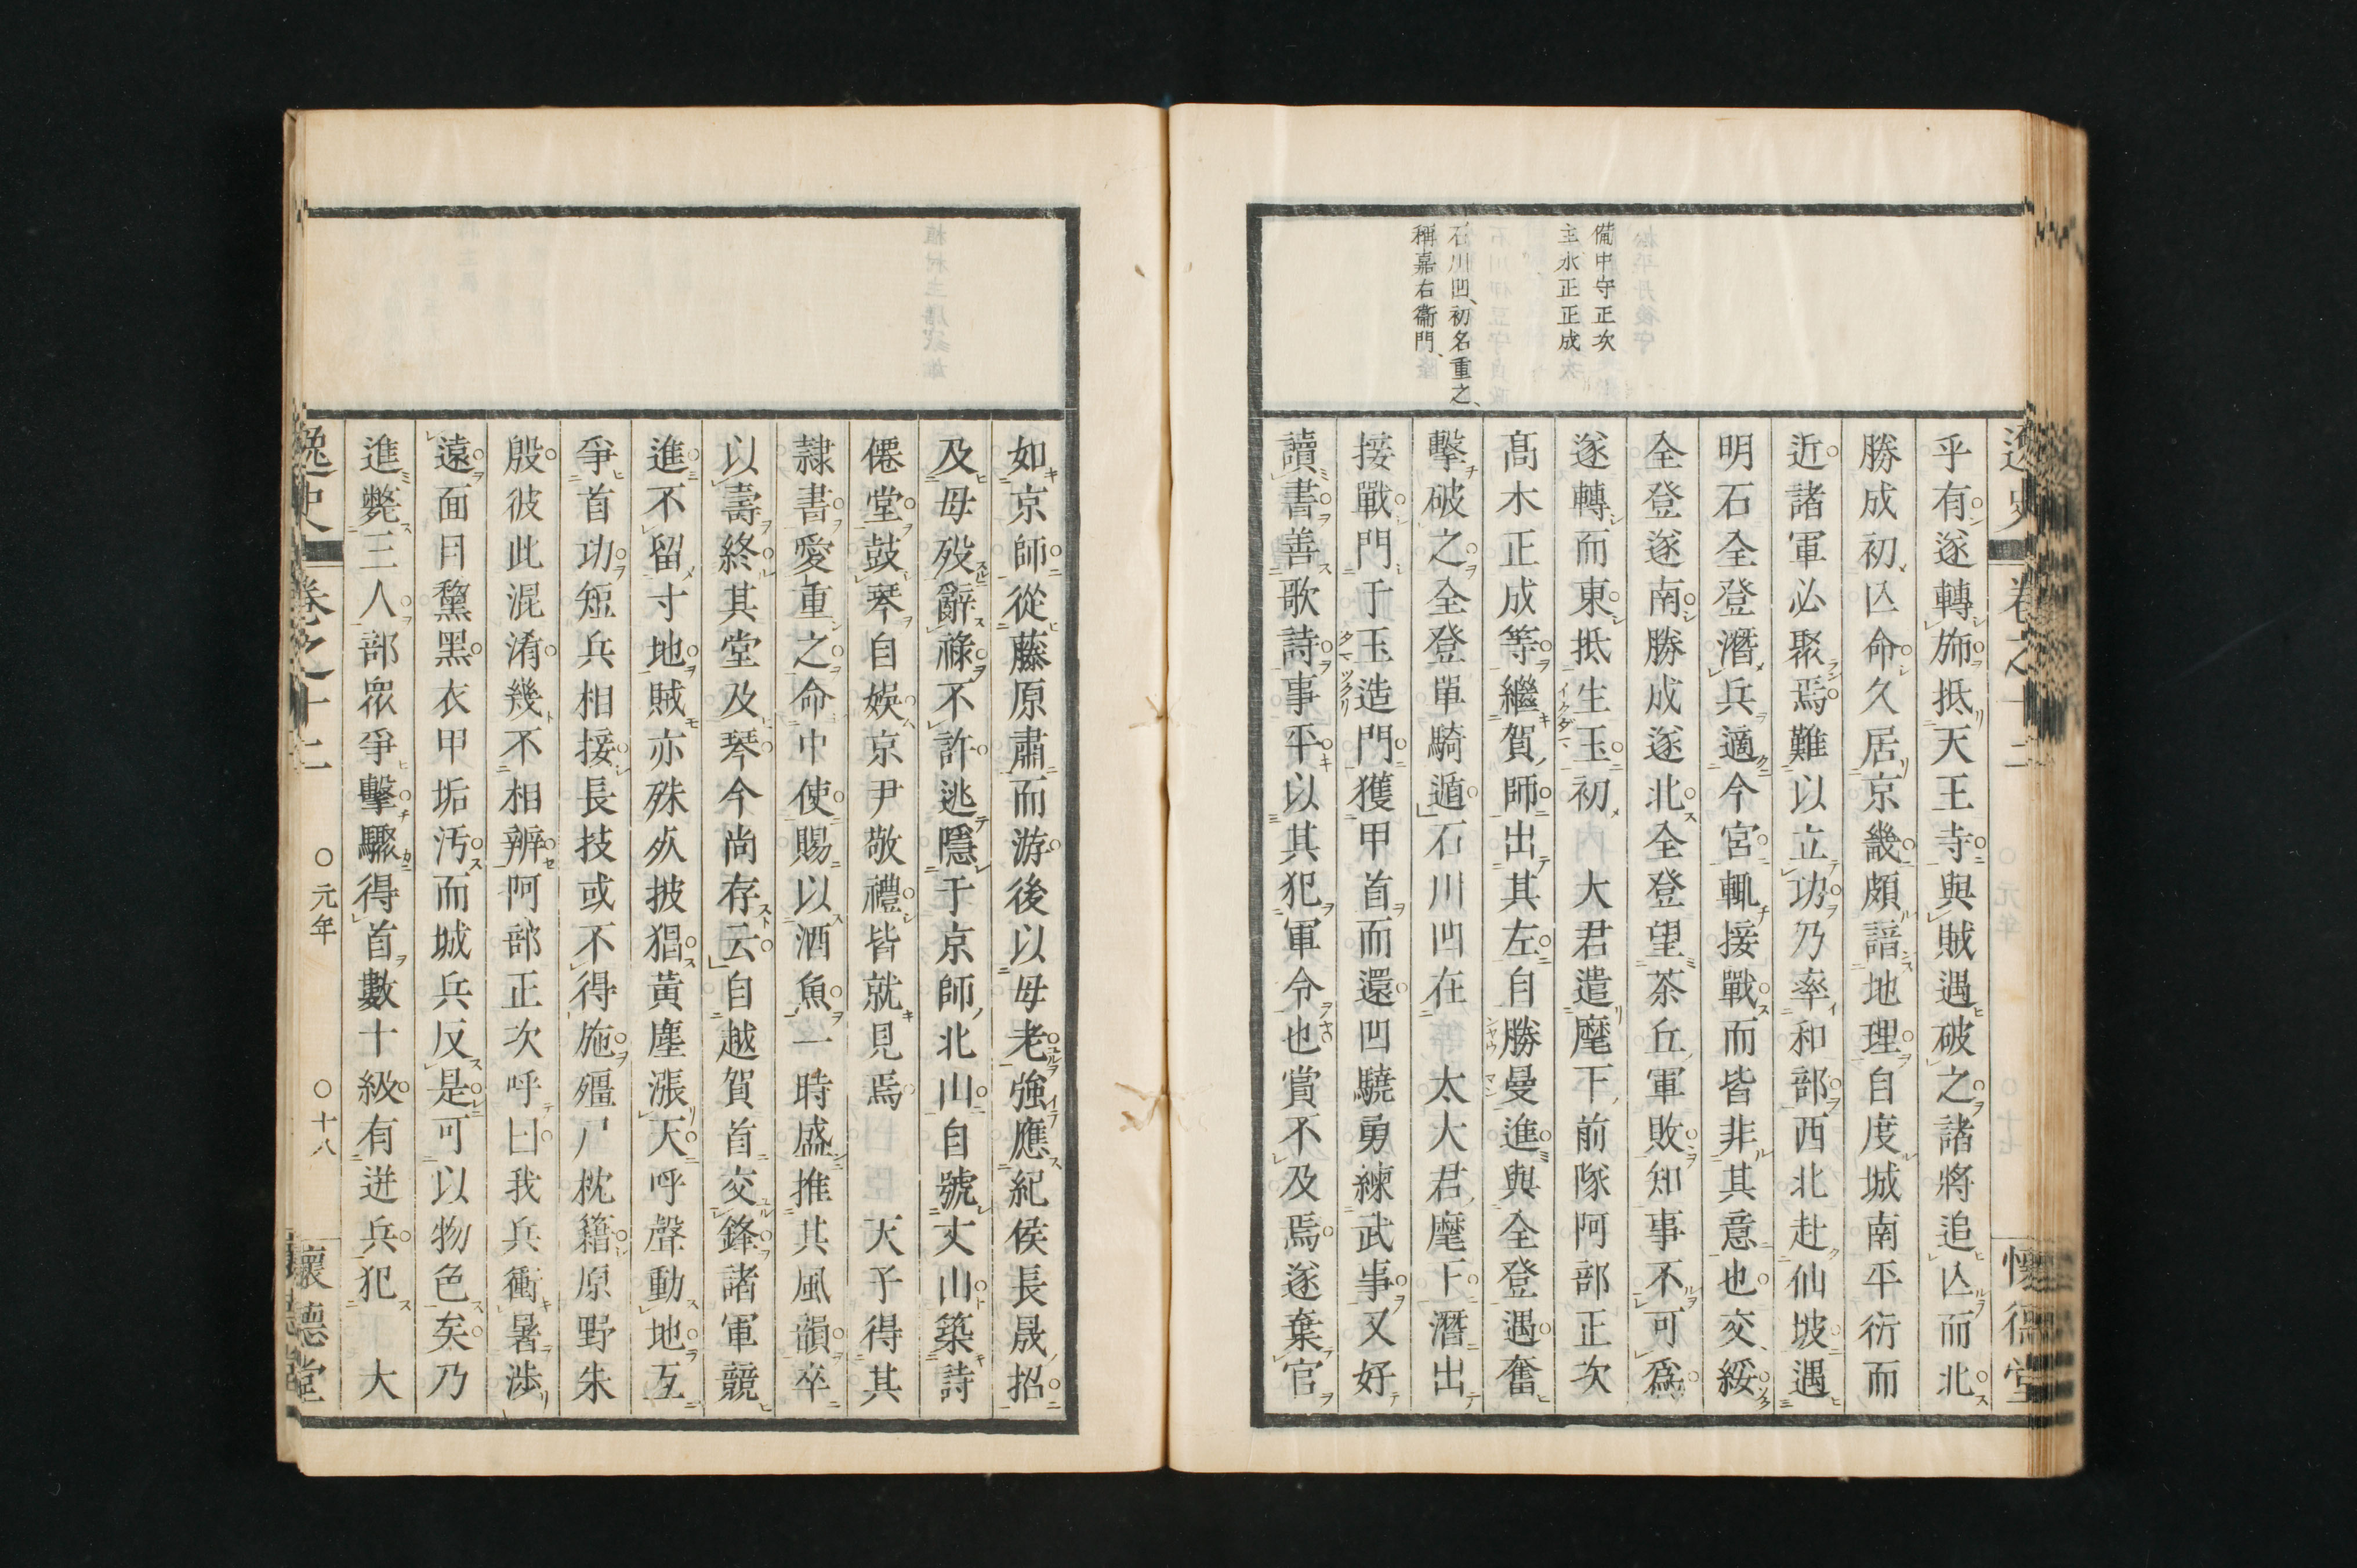 逸史 卷之十二 懷德堂
備中守正次
主水正正成
石川凹、初名重之、
稱嘉右衞門、
乎有遂轉旆抵天王寺與賊遇破之諸將追亾而北
勝成初亾命久居京畿頗諳地理自度城南平衍而
近諸軍必聚焉難以立功乃率和部西北赴仙坡遇
明石全登潛兵適今宮輒接戰而皆非其意也交綏
全登遂南勝成遂北全登望茶丘軍敗知事不可爲
遂轉而東抵生玉初 大君遣麾下前隊阿部正次
髙木正成等繼賀師出其左自勝曼進與全登遇奮
擊破之全登單騎遁石川凹在 太大君麾下潛出
接戰門于玉造門獲甲首而還凹驍勇練武事又好
讀書善歌詩事平以其犯軍令也賞不及焉遂棄官
如京師從藤原肅而游後以母老強應紀侯長晟招
及母歿辭祿不許逃隱于京師北山自號丈山築詩
僊堂鼓琴自娯京尹敬禮皆就見焉 天子得其
隷書愛重之命中使賜以酒魚一時盛推其風韻卒
以壽終其堂及琴今尚存云自越賀首交鋒諸軍競
進不留寸地賊亦殊死披猖黃塵漲天呼聲動地互
爭首功短兵相接長技或不得施殭尸枕籍原野朱
殷彼此混淆幾不相辨阿部正次呼曰我兵衝暑渉
遠面目黧黑衣甲垢汚而城兵反是可以物色矣乃
進斃三人部衆爭擊驟得首數十級有迸兵犯 大
逸史 卷之十二 ○元年 ○十八 懷德堂